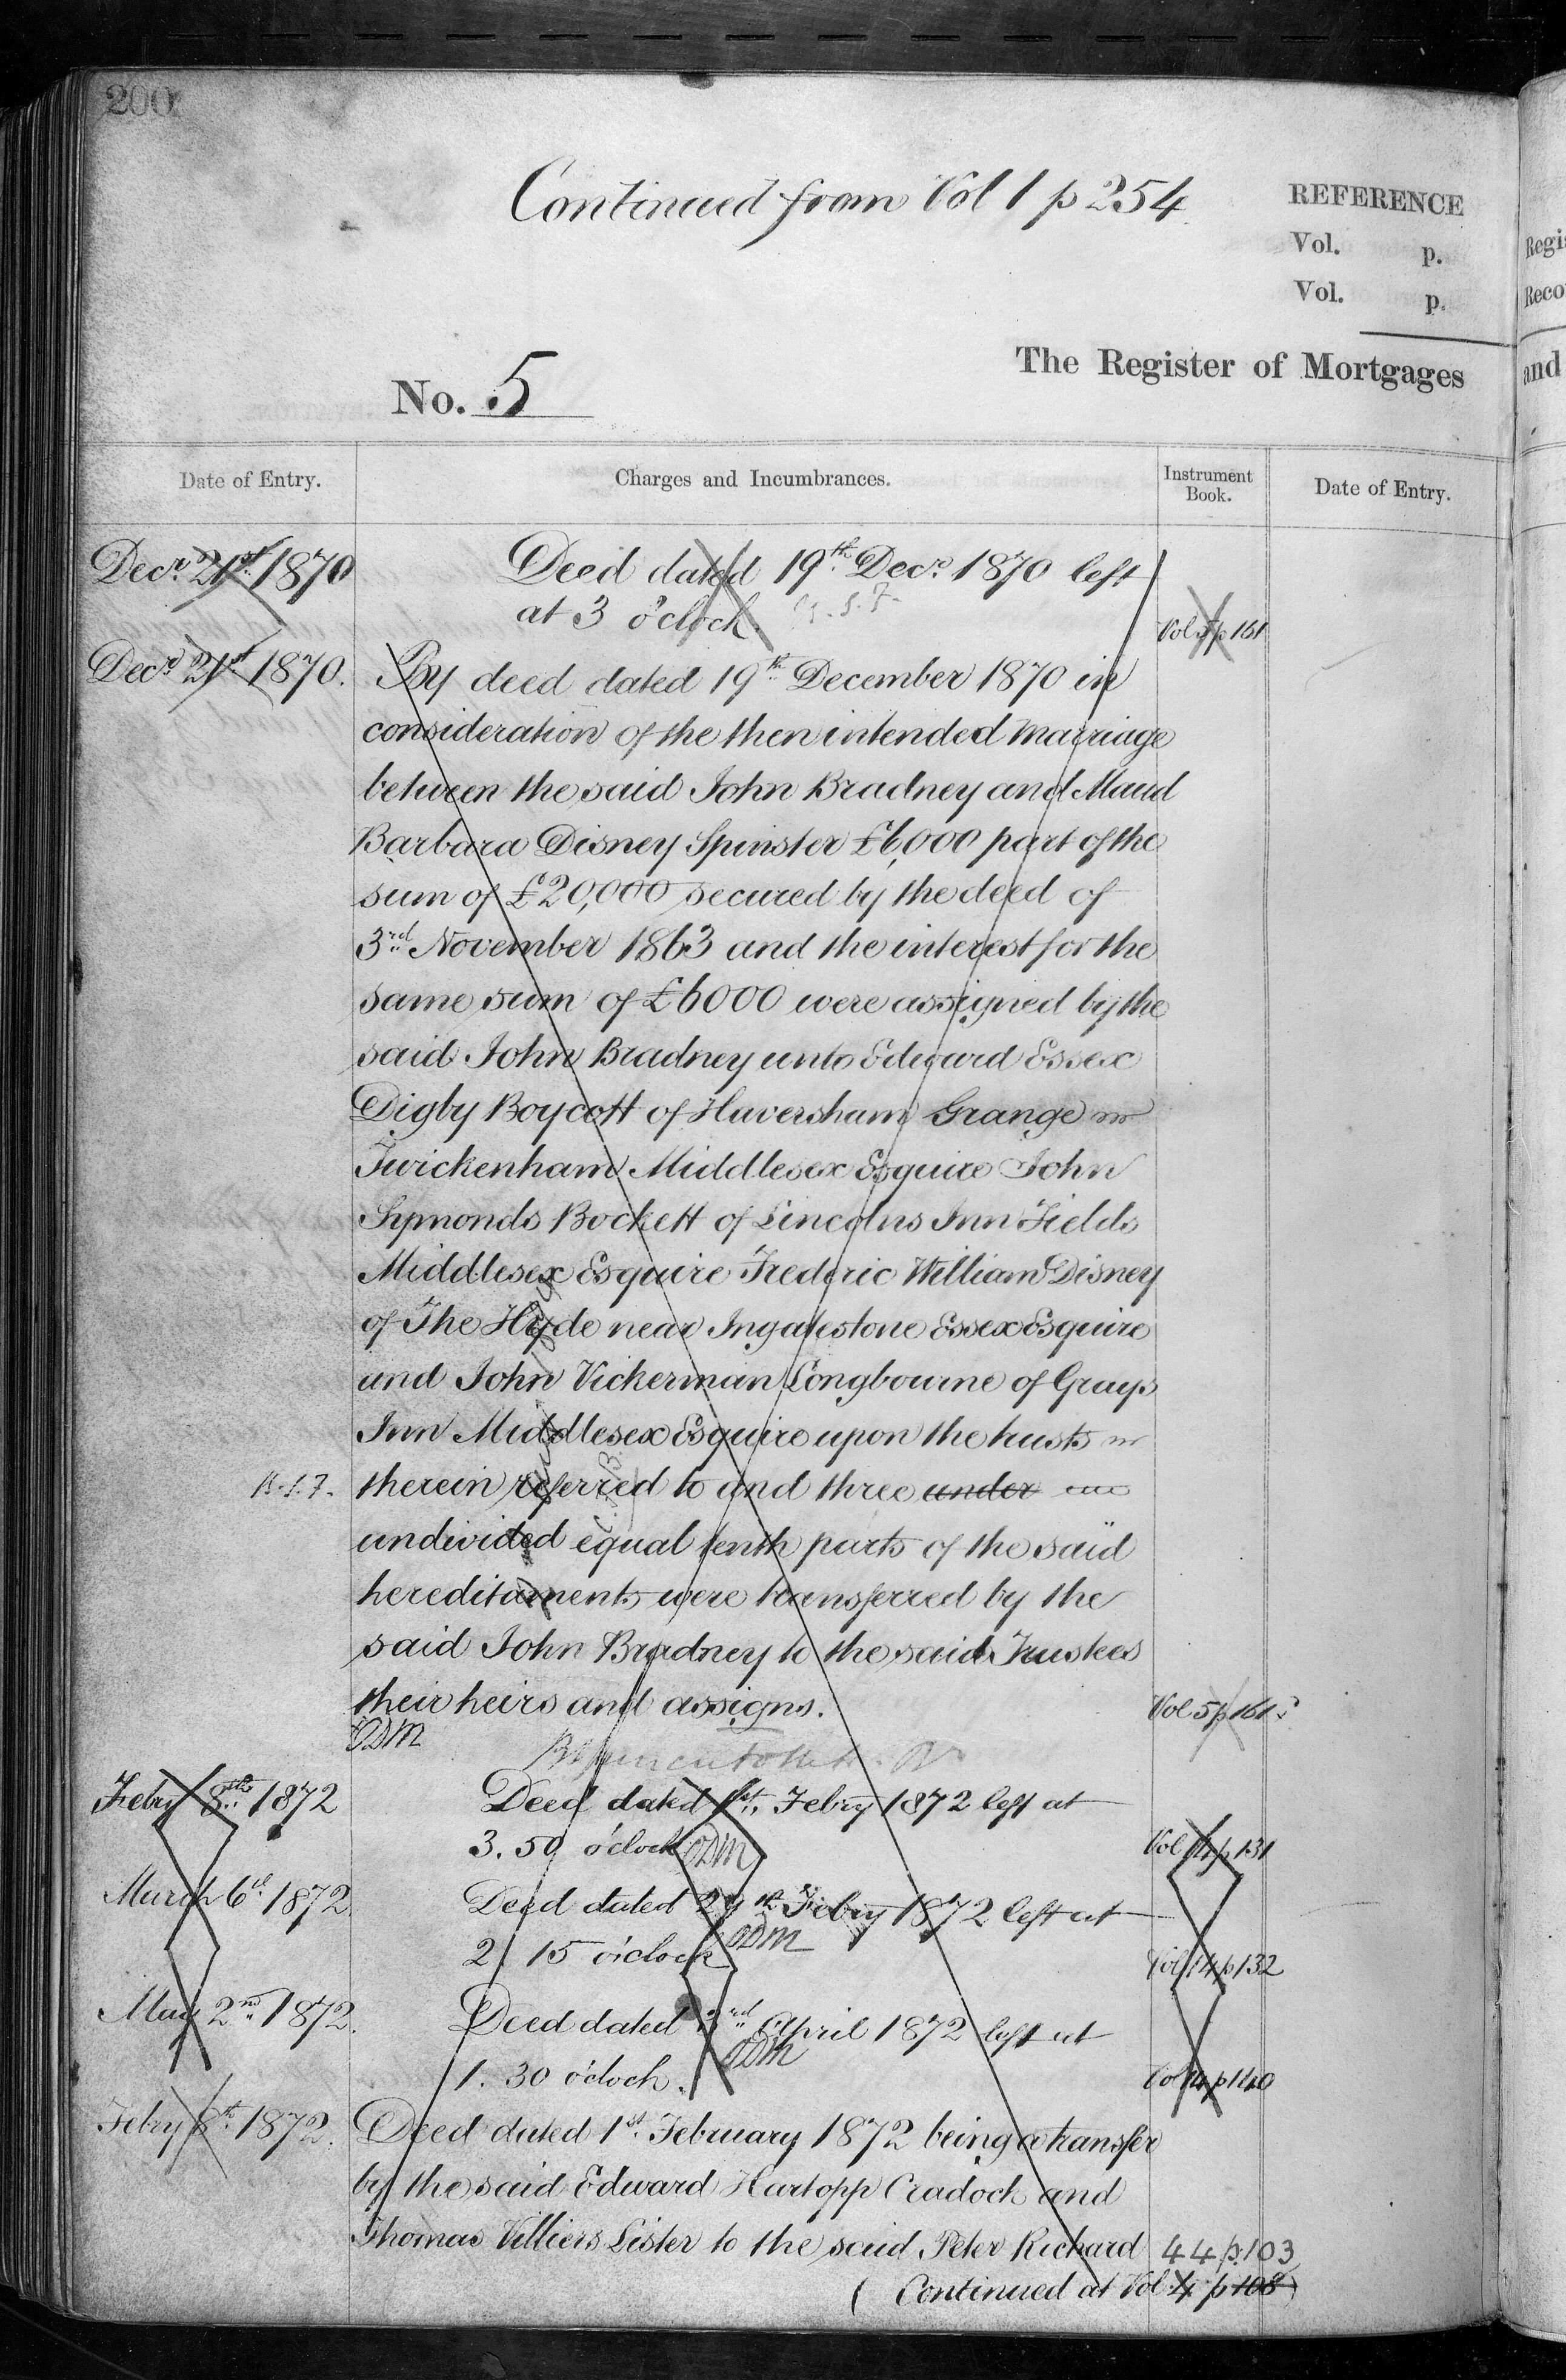 200
Continued from Vol 1 p 254
REFERENCE
Vol. p.
Vol. p.
The Register of Mortgages
No. 5
Date of Entry. Charges and Incumbrances. Instrument Book. Date of Entry.
Decr. 21st 1870 Deed dated 19th Decr. 1870 left
at 3 o'clock. Vol 5 p 161
Decr. 21st 1870. By deed dated 19th December 1870 in
consideration of the then intended marriage
between the said John Bradney and Maud
Barbara Disney Spinster £6,000 part of the
sum of £20,000 secured by the deed of
3rd November 1863 and the interest for the
same sum of £6000 were assigned by the
said John Bradney unto Edward Essex
Digby Boycott of Haversham Grange
Twickenham Middlesex Esquire John
Symonds Bockett of Lincolns Inn Fields
Middlesex Esquire Frederic William Disney
of The Hyde near Ingatestone Essex Esquire
and John Vickerman Longbourne of Grays
Inn Middlesex Esquire upon the trusts
therein referred to and three under
undivided equal tenth parts of the said
hereditaments were transferred by the
said John Bradney to the said Trustees
their heirs and assigns. Vol 5 p 161
ODM
Febry 8th 1872 Deed dated 1st Febry 1872 left at
3.50 o'clock ODM Vol 14 p 131
March 6th 1872 Deed dated Febry 1872 left at
2.15 o'clock ODM Vol 14 p 132
May 2nd 1872. Deed dated 3rd April 1872 left at
1.30 o'clock. ODM Vol 14 p 140
Febry 8th 1872. Deed dated 1st February 1872 being a transfer
by the said Edward Hartopp Cradock and
Thomas Villiers Lister to the said Peter Richard 44 p. 103
(Continued at Vol 4 p 108)